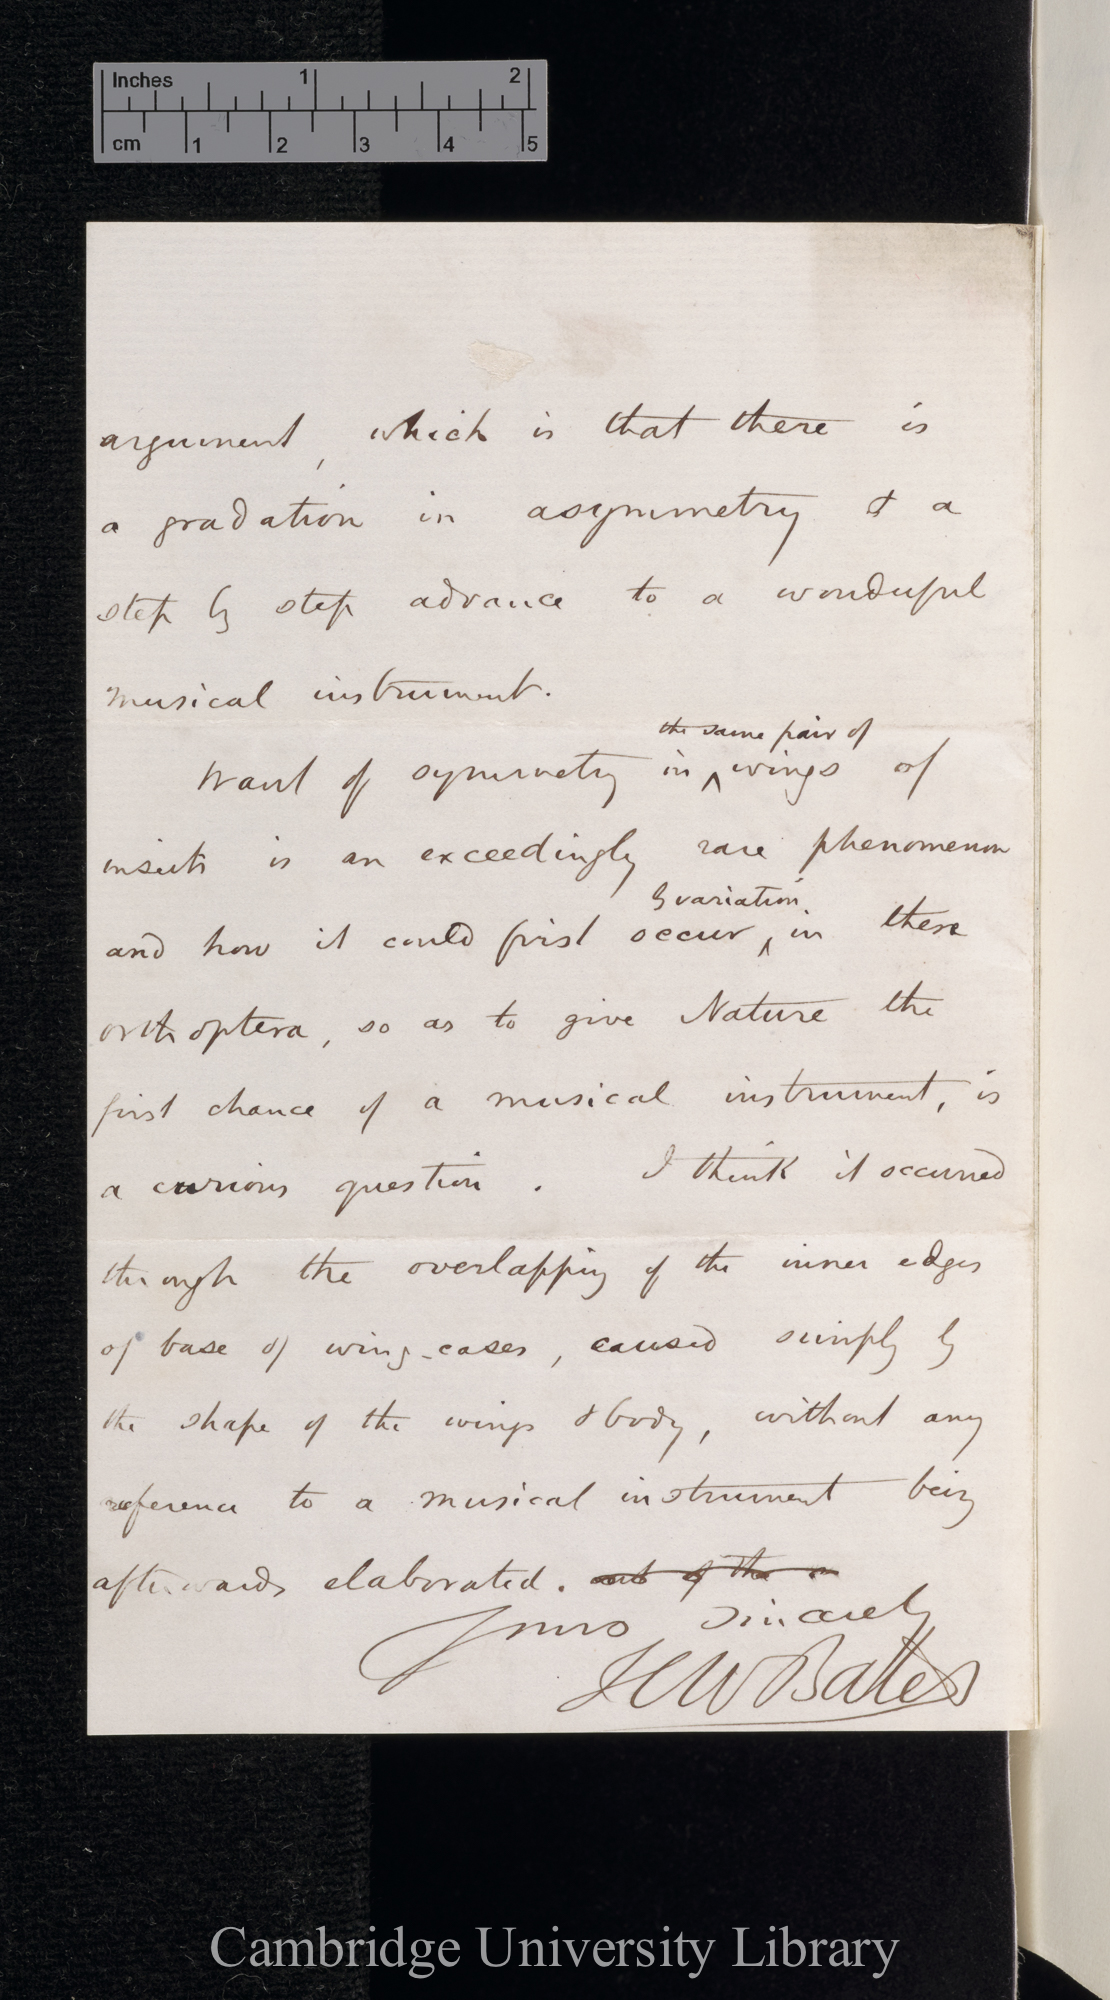 Inches 1 2
cm 1 2 3 4 5
argument, which is that there is
a gradation in asymmetry & a
step by step advance to a wonderful
musical instrument.
the same pair of
Want of symmetry in ^ wings of
insects is an exceedingly rare phenomenon
by variation
and how it could first occur ^ in these
orthoptera, so as to give Nature the
first chance of a musical instrument, is
a curious question. I think it occurred
through the overlapping of the inner edges
of base of wing-cases, caused simply by
the shape of the wings & body, without any
reference to a musical instrument being
afterwards elaborated. out of the
Yours sincerely
HW Bates
Cambridge University Library